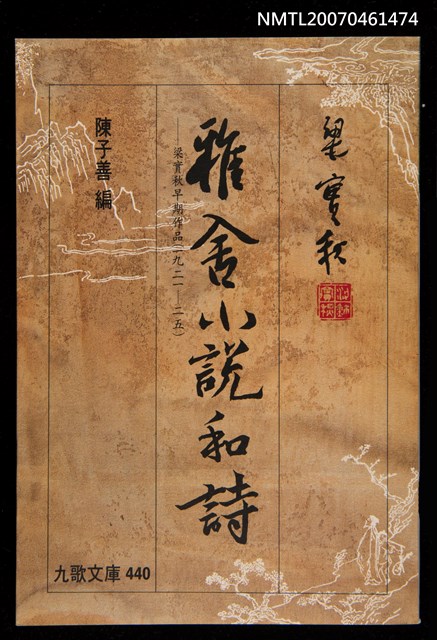 NMTL20070461474
梁實秋
雅舍小說和詩
——梁實秋早期作品(一九二一——二五)
陳子善 編
九歌文庫 440